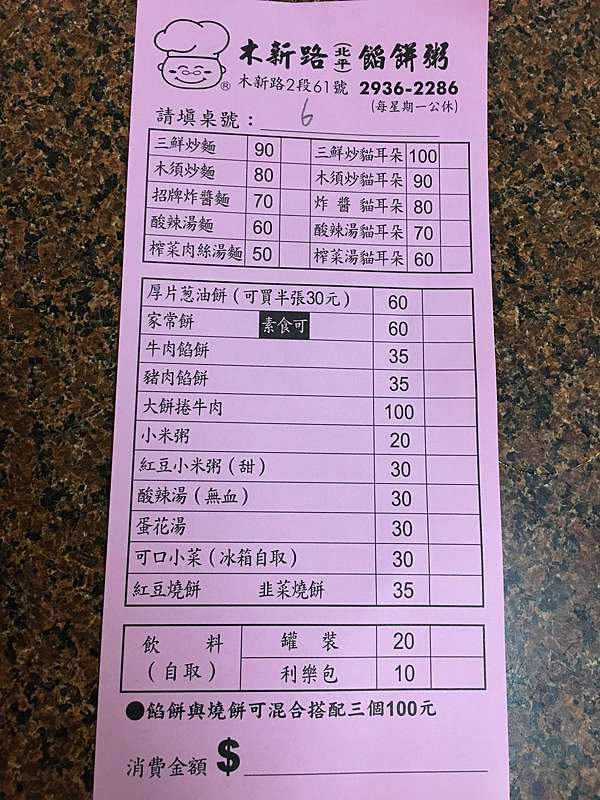 木新路 北平 餡餅粥
®
木新路2段61號 2936-2286
(每星期一公休)
請填桌號： 6
三鮮炒麵 90 三鮮炒貓耳朵 100
木須炒麵 80 木須炒貓耳朵 90
招牌炸醬麵 70 炸醬貓耳朵 80
酸辣湯麵 60 酸辣湯貓耳朵 70
榨菜肉絲湯麵 50 榨菜湯貓耳朵 60
厚片葱油餅(可買半張30元) 60
家常餅 素食可 60
牛肉餡餅 35
豬肉餡餅 35
大餅捲牛肉 100
小米粥 20
紅豆小米粥(甜) 30
酸辣湯(無血) 30
蛋花湯 30
可口小菜(冰箱自取) 30
紅豆燒餅 韭菜燒餅 35
飲料 罐裝 20
(自取) 利樂包 10
●餡餅與燒餅可混合搭配三個100元
消費金額 $